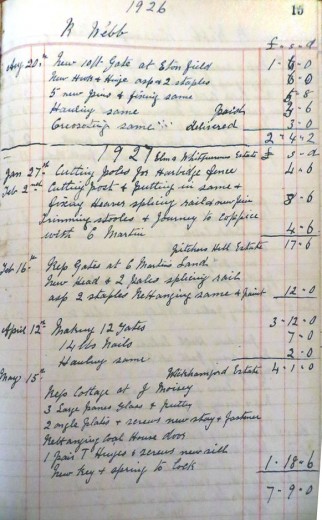 1926 15
R Webb
£ - s - d
Aug 20th New 10ft Gate at Elm field 1 - 6 - 0
New Hook & Hinge asp & 2 staples 6 - 0
5 new pins & fixing same 6 - 8
Hauling same Paid 2 - 6
Creosoting same delivered 3 - 0
2 - 4 - 2
1927 Elms Estate £ s - d
Jan 27th Cutting Poles for Hurbedge fence 4 - 6
Feb 2nd Cutting Post & putting in same &
fixing Heaver splicing rail & new pin 8 - 6
Trimming stooles & Journey to Coppice
with C Martin 4 - 6
Pitchers Hall Estate 17 - 6
Feb 16th Reps Gates at C Martins Land
New Head & 2 Pales splicing rail
asp 2 staples Rehanging same & Paint 12 - 0
April 12th Making 12 Gates 3 - 12 - 0
14 lbs Nails 7 - 0
Hauling same 2 - 0
Wickhamford Estate 4 - 1 - 0
May 15th
Reps Cottage at J Moisey
3 Large panes Glass & putty
2 angle plates & screws new stay & fastener
Rehanging Coal House door
1 pair T Hinges & screws new sill
New Key & spring to Lock 1 - 18 - 6
7 - 9 - 0